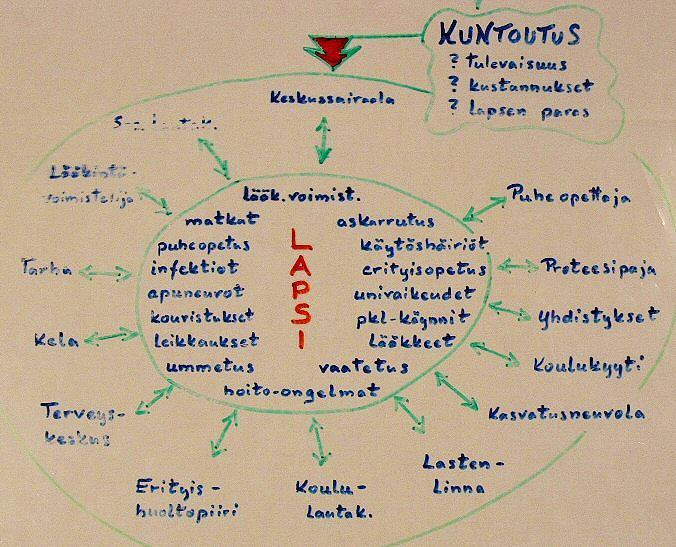 KUNTOUTUS
? tulevaisuus
? kustannukset
? lapsen paras
Keskussairaala
Lääkintä-
voimistelija
Puheopettaja
Tarha
Proteesipaja
Yhdistykset
Kela
Koulukyyti
Kasvatusneuvola
Terveys-
keskus
Lasten-
Linna
Erityis-
huoltopiiri
Koulu-
Lautak.
lääk.voimist.
matkat
askarrutus
puheopetus
käytöshäiriöt
infektiot
erityisopetus
apuneuvot
univaikeudet
kouristukset
pkl-käynnit
leikkaukset
lääkkeet
ummetus
vaatetus
hoito-ongelmat
LAPSI